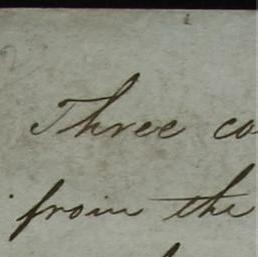 Three co
from the